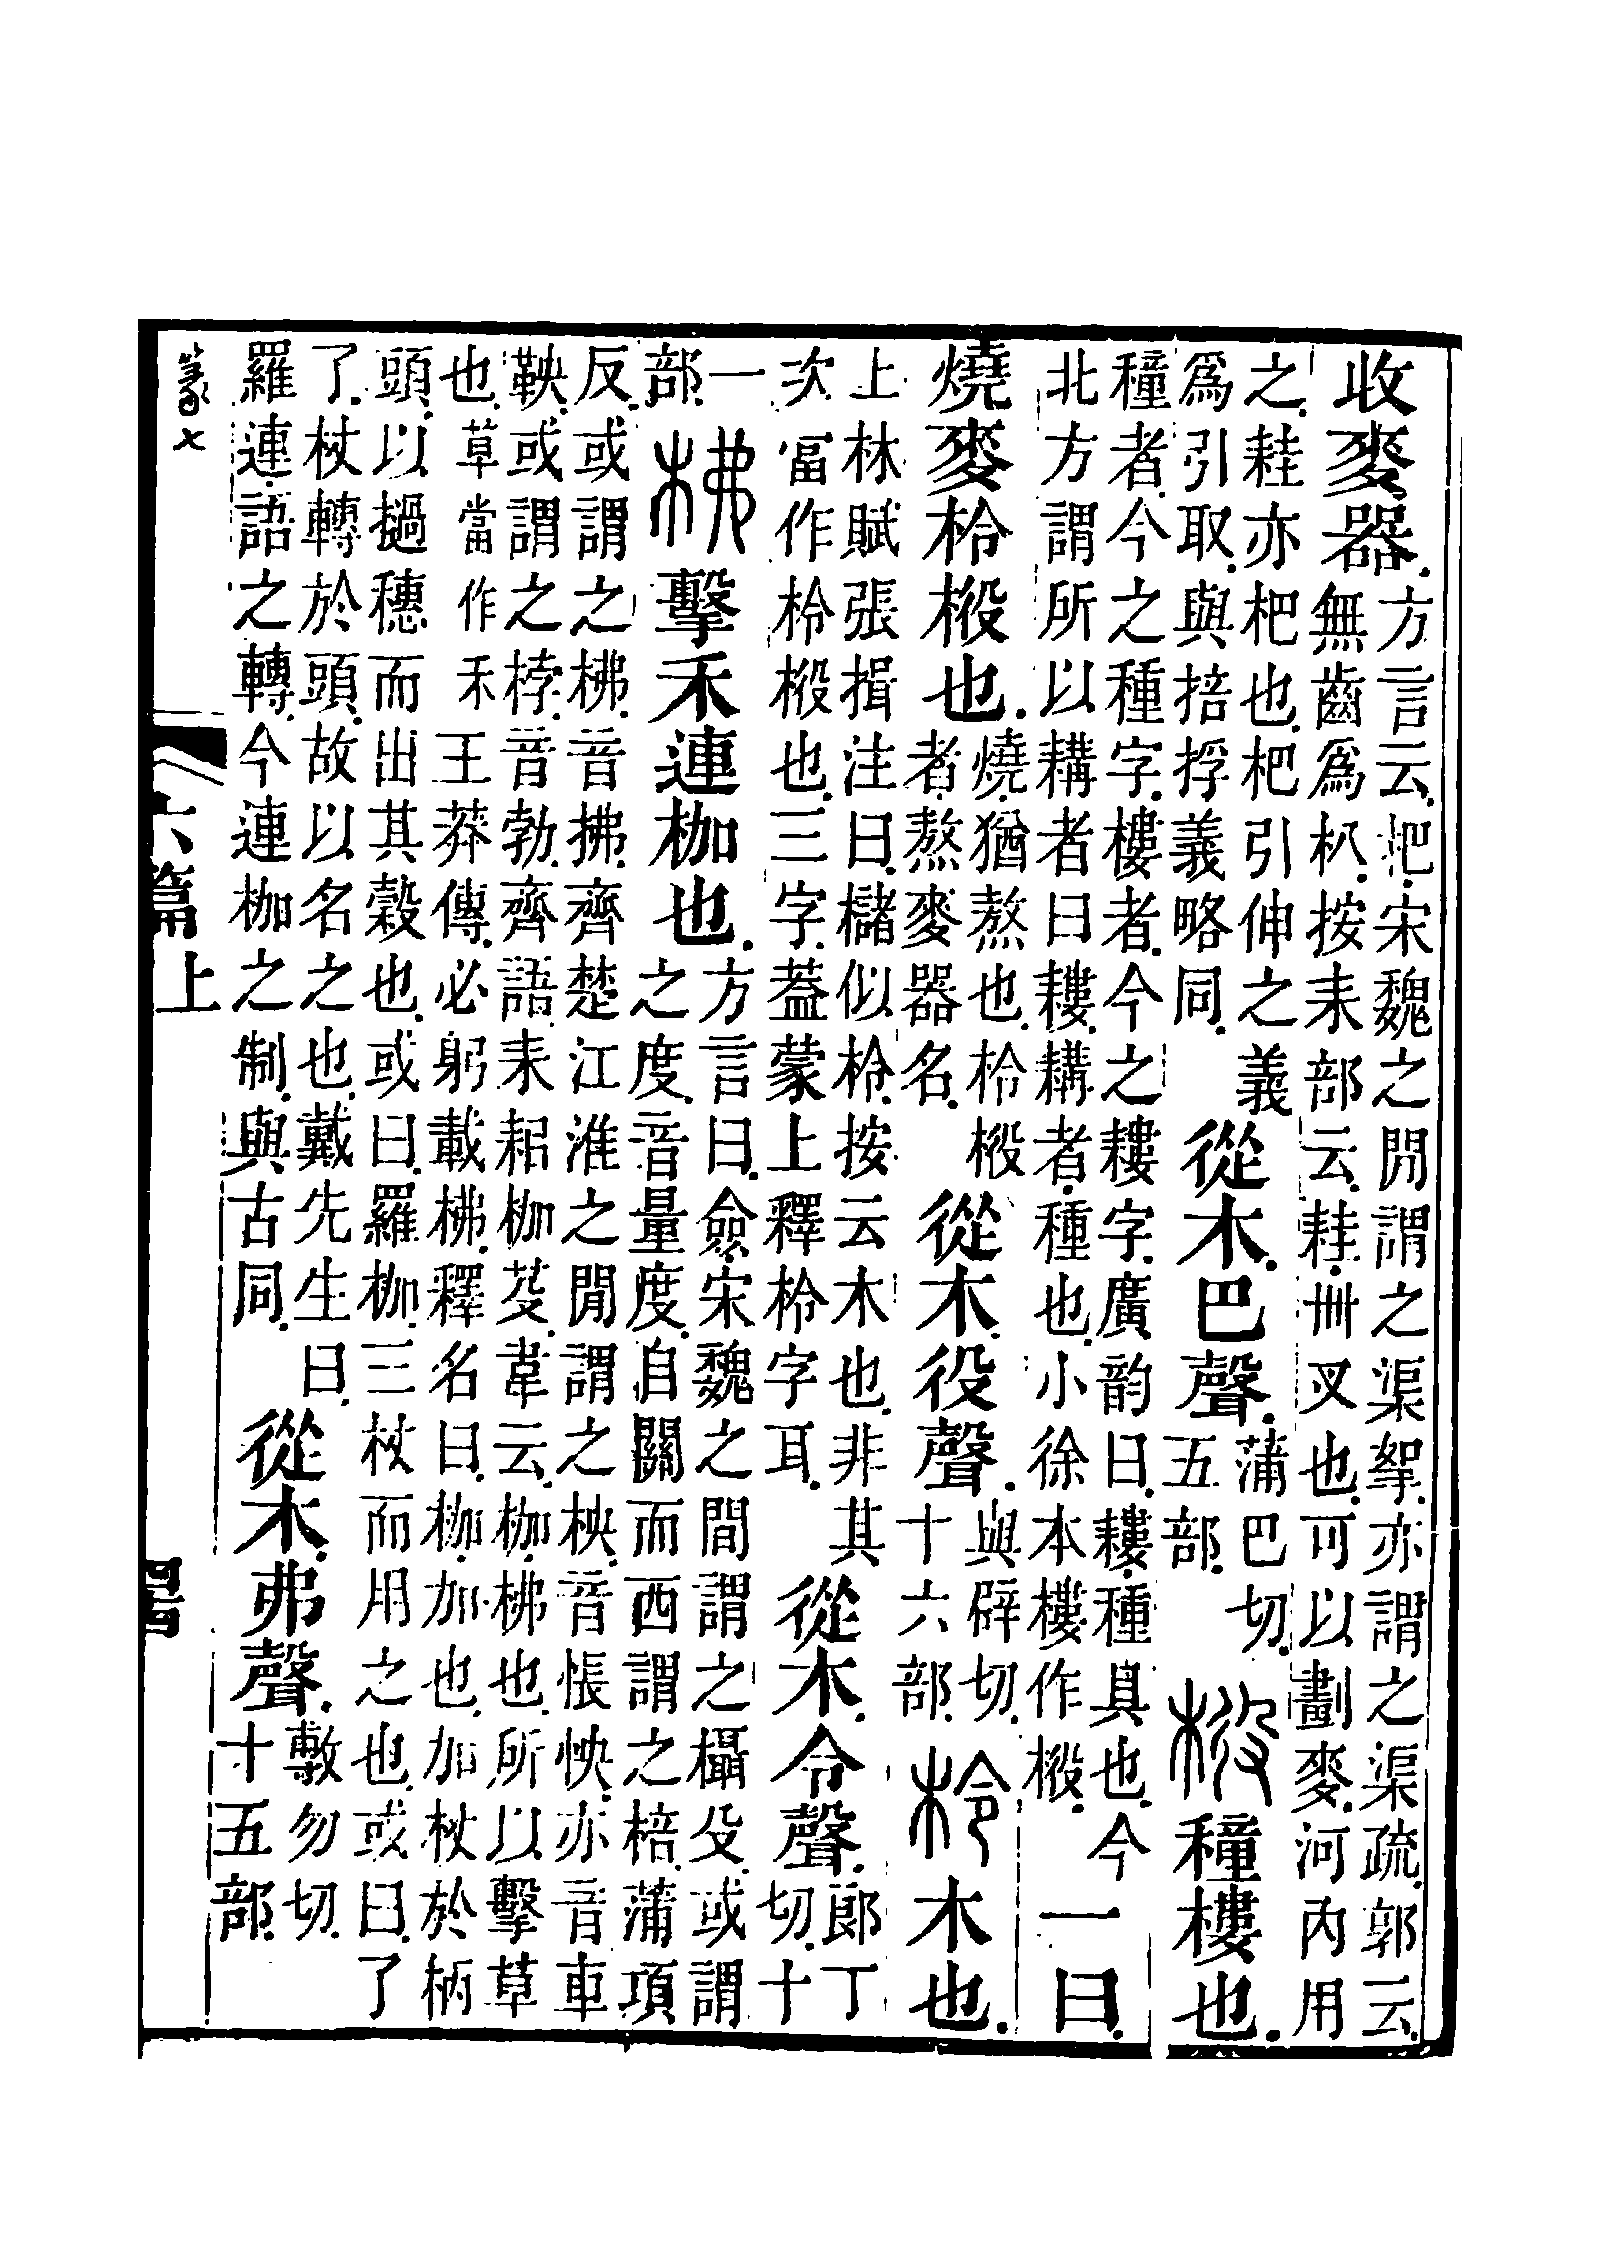 收麥器。方言云。杷宋魏之閒謂之渠挐。亦謂之渠疏。郭云。無齒爲朳。按耒部云。䎱。卌叉也。可以劃麥。河內用
之。䎱亦杷也。杷引伸之義爲引取。與掊捊義略同。從木。巴聲。蒲巴切。五部。𣔻穜樓也。
穜者。今之種字。樓者。今之耬字。廣韵曰。耬。種具也。今北方謂所以耩者曰耬。耩者。種也。小徐本樓作𣔻。一曰。
燒麥柃𣔻也。燒猶熬也。柃𣔻者。熬麥器名。從木。役聲。與辟切。十六部。柃木也。
上林賦張揖注曰。櫧似柃。按云木也。非其次。當作柃𣔻也三字。葢蒙上釋柃字耳。從木。令聲。郎丁切。十
一部。柫擊禾連枷也。方言曰。僉宋魏之間謂之欇殳。或謂之度。音量度。自關而西謂之棓。蒲項
反。或謂之柫。音拂。齊楚江淮之閒謂之柍。音悵怏。亦音車鞅。或謂之桲。音勃。齊語。耒耜枷芟。韋云。枷。柫也。所以擊草
也。草當作禾王莽傳。必躬載柫。釋名曰。枷。加也。加杖於柄頭。以撾穗而出其穀也。或曰。羅枷。三杖而用之也。或曰。了
了。杖轉於頭。故以名之也。戴先生曰。羅連。語之轉。今連枷之制。與古同。從木。弗聲。敷勿切。十五部。
六篇上
篆七